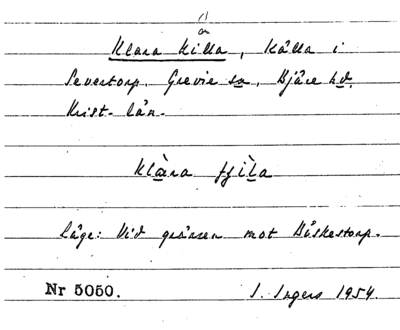 Klara Killa, Källa i
Severtorp, Grevie sn, Bjäre hd.
Krist. län.
Klàra ȷ̌ìla
Läge: Vid gränsen mot Böskestorp.
Nr 5050.
I. Ingers 1954.